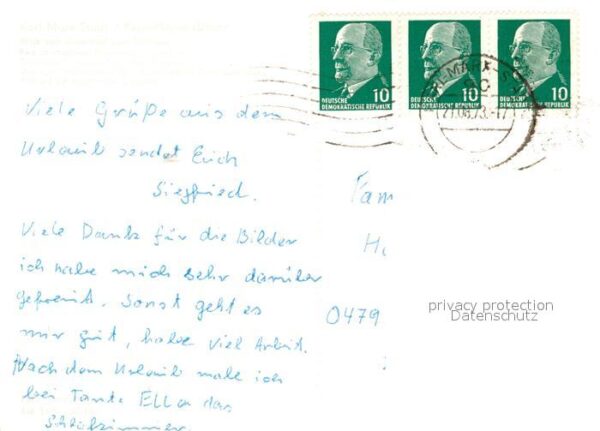 Karl-Marx-Stadt
10 10 10
DEUTSCHE DEMOKRATISCHE REPUBLIK DEUTSCHE DEMOKRATISCHE REPUBLIK DEUTSCHE DEMOKRATISCHE REPUBLIK
Viele Grüße aus dem
Urlaub sendet Euch
Siegfried.
Fam
Viele Dank für die Bilder
ich habe mich sehr darüber
gefreut. Sonst geht es
0479
privacy protection
Datenschutz
mir gut, habe viel Arbeit.
Nach dem Urlaub male ich
bei Tante Ella das
Schlafzimmer.